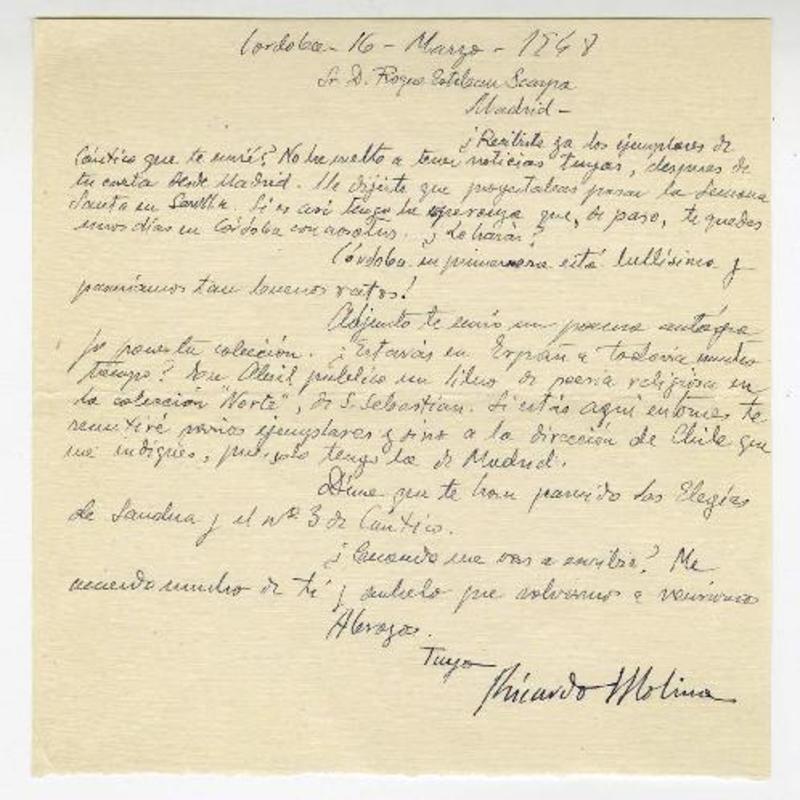 Cordoba - 16 - Marzo - 1948
Sr. D. Roque Esteban Scarpa
Madrid -
¿Recibiste ya los ejemplares de
Cántico que te envié? No he vuelto a tener noticias tuyas, despues de
tu carta desde Madrid. Me dijiste que proyectabas pasar la Semana
Santa en Sevilla. Si es así tengo la esperanza que, de paso, te quedes
unos días en Córdoba con nosotros. ¿Lo harás?
Córdoba en primavera está bellísima y
pasaríamos tan buenos ratos!
Adjunto te envío un poema autógra
fo para tu colección. ¿Estarás en España todavía mucho
tiempo? En Abril publico un libro de poesía religiosa en
la colección "Norte", de S. Sebastian. Si estás aquí entonces te
remitiré varios ejemplares y sino a la dirección de Chile que
me indiques, pues solo tengo la de Madrid.
Dime que te han parecido las Elegías
de Sandua y el nº 3 de Cántico.
¿Cuando me vas a escribir? Me
acuerdo mucho de tí y anhelo que volvamos a reunirnos
Abrazos.
Tuyo
Ricardo Molina